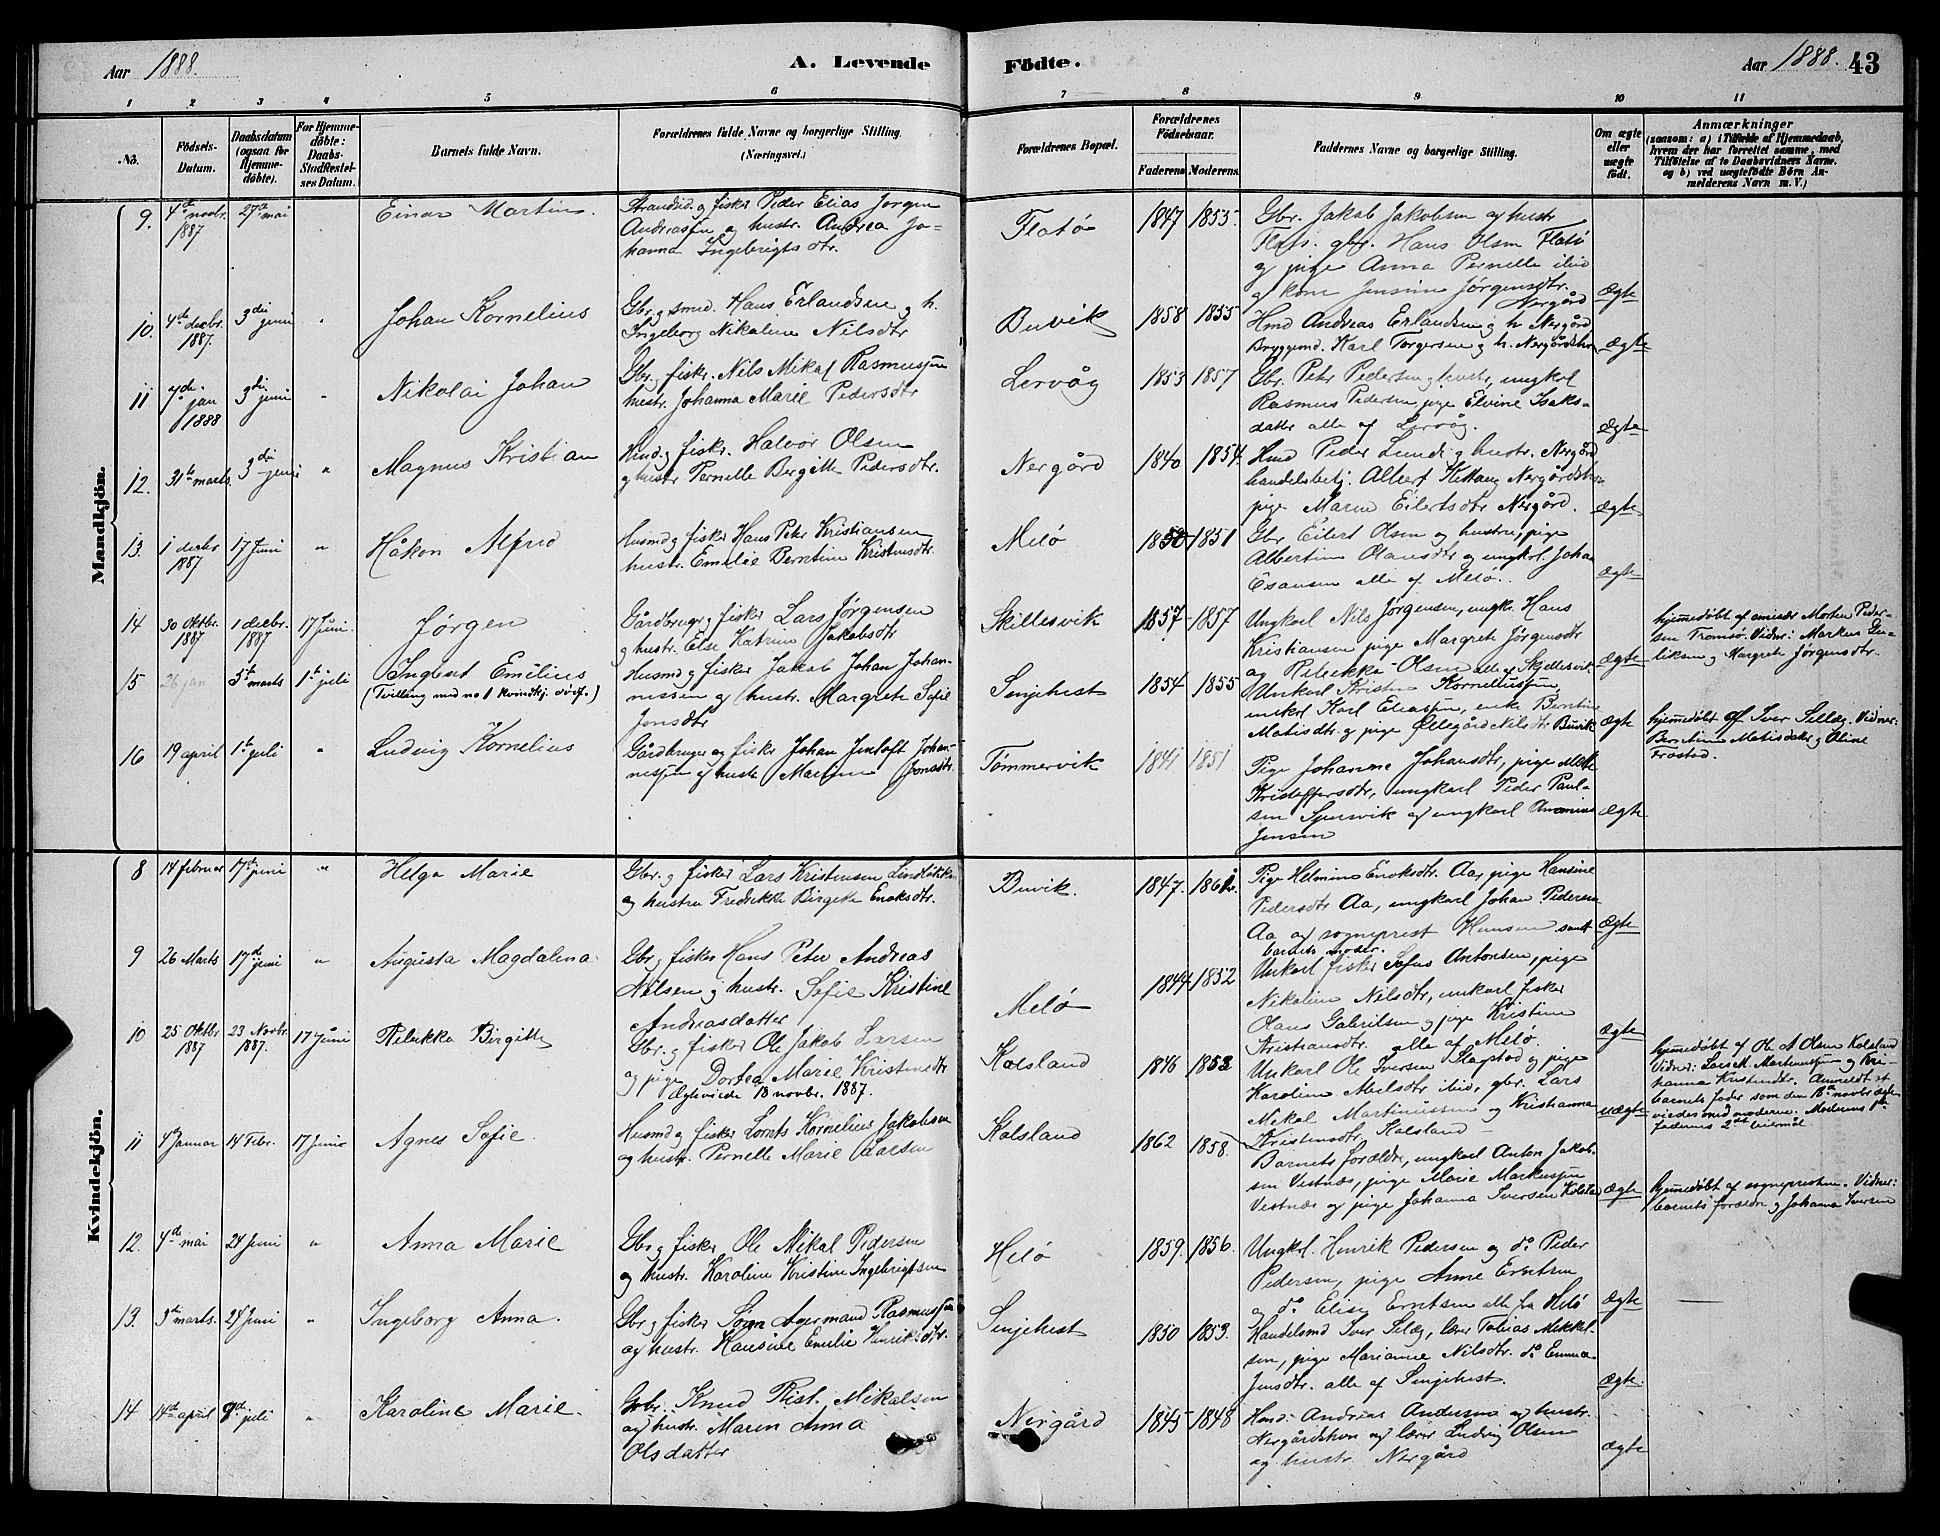 Aar 1888. A. Levende
Födte. Aar 1888. 43
1 2 3 4 5 6 7 8 9 10 11
No.
Födsels-Datum.
Daabsdatum (ogsaa for Hjemme-döbte).
For Hjemme-döbte: Daabs-Stadfæstel-ses Datum.
Barnets fulde Navn.
Forældrenes fulde Navne og borgerlige Stilling. (Næringsvei.)
Forældrenes Bopæl.
Forældrenes Födselsaar.
Faderens Moderens.
Faddernes Navne og borgerlige Stilling.
Om ægte eller uægte födt.
Anmærkninger
(saasom: a) i Tilfælde af Hjemmedaab,
hvem der har forrettet samme, med
Tilföielse af to Daabsvidners Navne.
og b) ved uægtefödte Börn An-
melderens Navn m. V.)
Mandkjön.
9. 4de novbr. 1887 27de mai
Einar Martin.
Strandsid. og fisker Peder Elias Jørgen
Andreassen og hustr. Andrea Jo-
hanna Ingebrigtsdtr.
Flatø 1847 1855.
Gbr. Jakob Jakobsen og hustr
Flatø. gbr. Hans Olsen Flatø
og pige Anna Pernelle ibid
og kone Jensine Jørgensdtr.
Nergård
Ægte
10. 4de decbr. 1887. 3die juni "
Johan Kornelius
Gbr. g smed. Hans Erlandsen og h.
Ingeborg Nikoline Nilsdtr
Buvik 1858 1855
Hmd Andreas Erlandsen g h Nergård
Bryggemd. Karl Torgersen g h. Nergårdshvn
Ægte
11 7de jan 1888 3die juni "
Nikolai Johan
Gbr. g fiskr. Nils Mikal Rasmussen
hustr. Johanna Marie Pedersdtr
Lervåg 1853 1857
Gbr. Petr Pedersen g hustr, ungkol
Rasmus Pedersen pige Elvine Isaks-
datter alle af Lervåg.
Ægte
12. 31te marts. 3die juni "
Magnus Kristian
Hmd. g fiskr. Halvor Olsen
g hustr Pernelle Bergitte Pedersdtr.
Nergård 1840 1854.
Hmd Peder Lund g hustr. Nergård
handelsbetj. Albert Kettang Nergårdshvn
pige Maren Eilertsdtr Nergård.
Ægte
13. 1 decbr 1887 17 Juni "
Håkon Alfred
Husmd g fisker Hans Peter Kristiansen
hustr. Emilie Berntine Kristensdtr.
Melø 1850 1851
Gbr Eilert Olsen og hustru, pige
Albertine Olausdtr og ungkrl. Johan
Esansen alle af Melø.
Ægte
14 30 Oktbr. 1887 1 decbr. 1887 17 Juni
Jørgen
Gårdbruger g fisker Lars Jørgensen
g hustr. Else Katrine Jakobsdtr
Skillesvik 1857 1857
Ungkarl Nils Jørgensen, ungkr. Hans
Kristiansen pige Margrete Jørgensdtr
og Rebekka Olsen alle af Skjellesvik
Ægte
hjemmedøbt af emissær Morten Peder-
sen Tromsø. Vidner: Markus Gu-
liksen g Margrete Jørgensdtr.
15 26 jan. 5te marts 1te juli
Ingbert Emilius
(Tvilling med no 1 kvindekj. dödf.)
Husmd g fisker Jakob Johan Johan-
nessen g hustr. Margrete Sofie
Jonsdtr
Senjehest 1854 1855
Unkarl Kristen Korneliussen,
unkrl Karl Eliassen, enke Berntine
Matisdtr. g pige Ollegård Nilsdtr Buvik
Ægte
hjemmedøbt af Iver Selæg. Vidner:
Berntine Matisdatter g Oline
Frostad.
16 19 april 1te juli "
Ludvig Kornelius
Gårdbruger og fisker Johan Jenloft Johan-
nessen g hustr Martine Jonsdtr.
Tömmervik 1841 1851
Pige Johanne Johansdtr, pige Mette
Kristoffersdtr, ungkarl Peder Paul-
sen Sjursvik og ungkarl
Jensen
Ægte
Kvindekjön.
8 14 februar 17de juni "
Helga Marie
Gbr. g fisker Lars Kristensen Lindbekken
og hustru Fredrikke Birgitte Enoksdtr.
Buvik. 1847. 1861.
Pige Helmine Enoksdtr. Aa, pige Hansine
Pedersdtr Aa, ungkarl Johan Pedersen
Aa og sogneprest Hansen samt
barnets moder.
Ægte
9 26 Marts 17de juni "
Augusta Magdalena
Gbr. g fisker Hans Peter Andreas
Nilsen g hustr. Sofie Kristine
Andreasdatter
Melø 1844 1852
Unkarl fisker Sofus Antonsen, pige
Nikoline Nilsdtr, unkarl fisker
Olaus Gabrielsen g pige Kristine
Kristiansdtr. alle af Melø.
Ægte
10 25 Oktbr 1887 23 Novbr. 1887. 17 Juni
Rebekka Birgitte
Gbr. g fisker Ole Jakob Larsen
og pige Dortea Marie Kristensdtr
Ægteviede 18 novbr. 1887.
Kolsland 1846 1853
Unkarl Ole Iversen Flagstad g pige
Karoline Nilsdtr ibid, gbr. Lars
Mikal Martinussen og Kristianna
Kristensdtr Kolsland
uægte
hjemmedøbt af Ole A Olsen Kolsland
Vidner: Lars M. Martinussen og Kri-
stianna Kristensdtr. Anmeldt at
barnets fader som den 18de novbr ægte-
viedes med moderen. Moderens 1ste
faderens 2det leiermål
11 4de Januar 14 Febr. 17 Juni
Agnes Sofie.
Husmd g fisker Lornts Kornelius Jakobsen
og hustr. Pernelle Marie Larsen
Kolsland 1862 1858.
Barnets forældre, ungkarl Anton Jakob-
sen Vestnæs, pige Marie Markussen
Vestnæs og pige Johanna Iversen Kolsland
Ægte
hjemmedøbt af sognepresten. Vidner:
barnets forældre g Johanna Iversen
12. 4de mai 24 Juni "
Anna Marie
Gbr g fisker Ole Mikal Pedersen
og hustr. Karoline Kristine Ingebrigtsen
Helø 1859. 1856.
Ungkrl. Henrik Pedersen og do Peder
Pedersen, pige Anne Erntsen
og do Elise Erntsen alle fra Helø
Ægte
13. 3die marts. 24 Juni "
Ingeborg Anna.
Gbr g fisker Søren Agermand Rasmussen
og hustr. Hansine Emilie Henriksdtr.
Senjehest 1850 1853.
Handelsmd Iver Selæg, lærer Tobias Mikkel-
sen, pige Marianne Nilsdtr. do Emma
Jensdtr. alle af Senjehest.
Ægte.
14 14de april 8de juli "
Karoline Marie.
Gbr. Knud Rist. Mikalsen
og hustr. Maren Anna
Olsdatter
Nergård 1845 1848
Hmd. Andreas Andersen og hustr.
Nergårdshvn og lærer Ludvig Olsen
og hustr. Nergård
Ægte